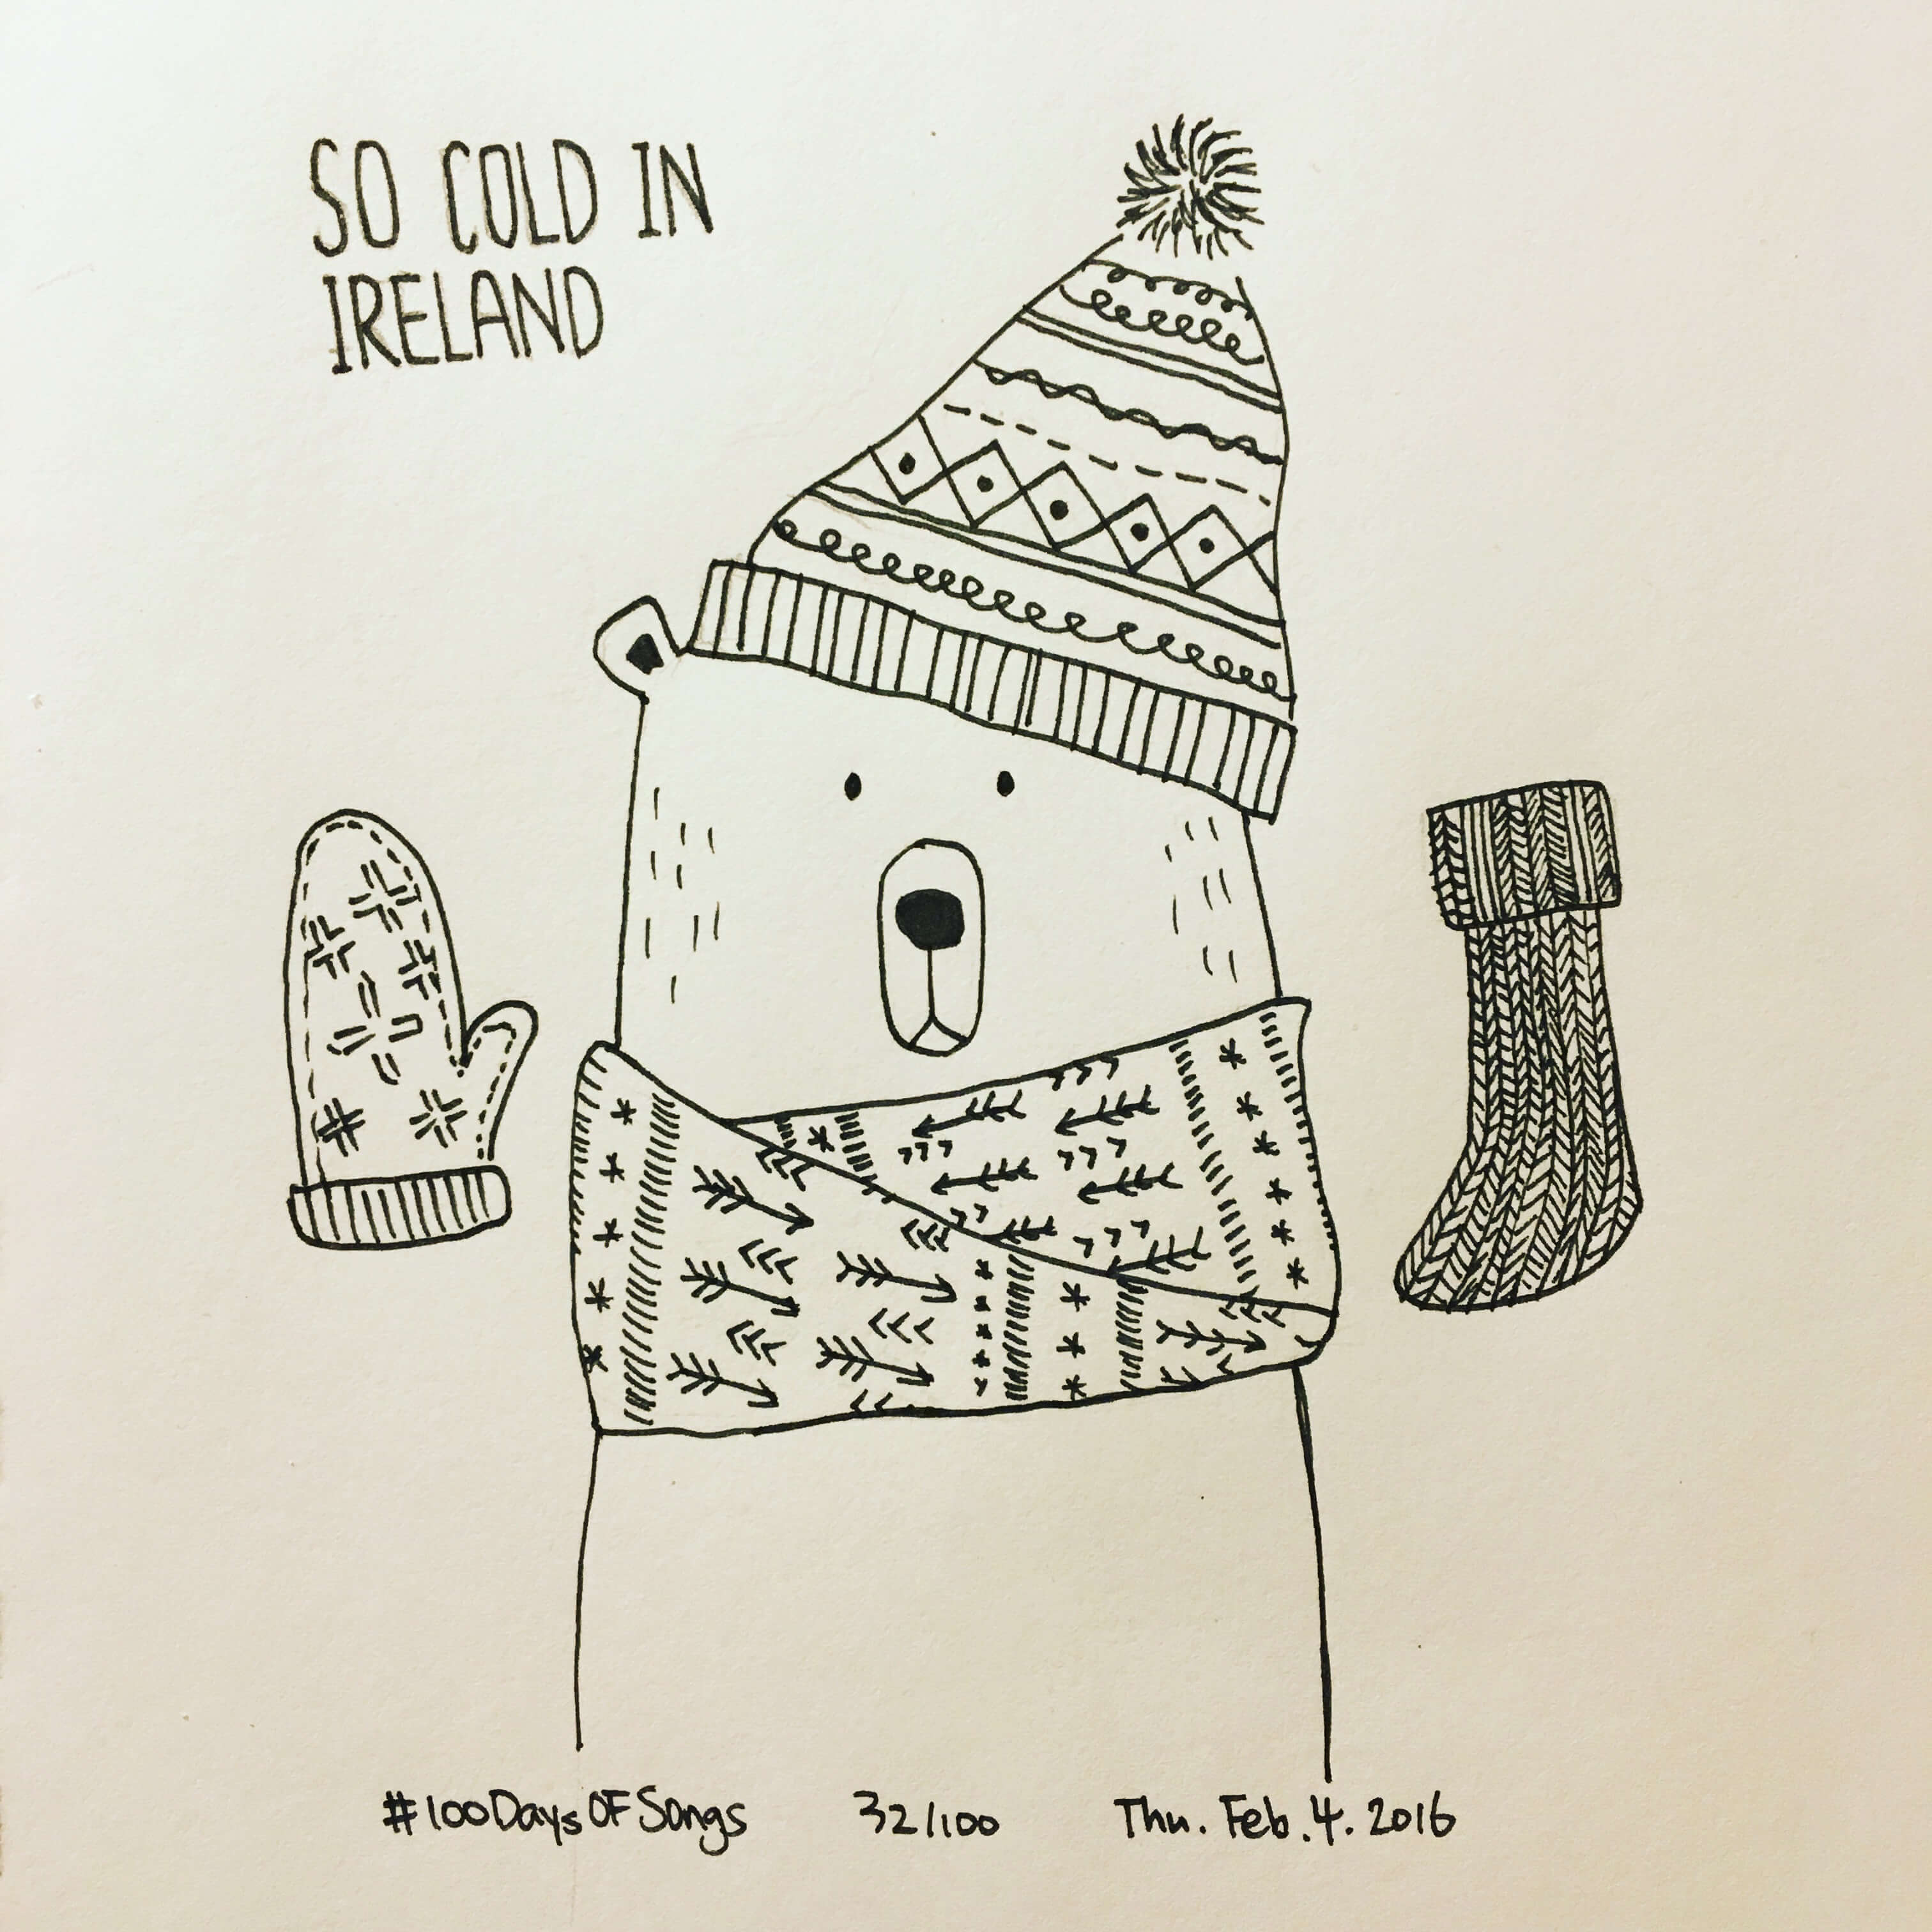 SO COLD IN
IRELAND
#100DaysOFSongs 32/100 Thu. Feb. 4. 2016